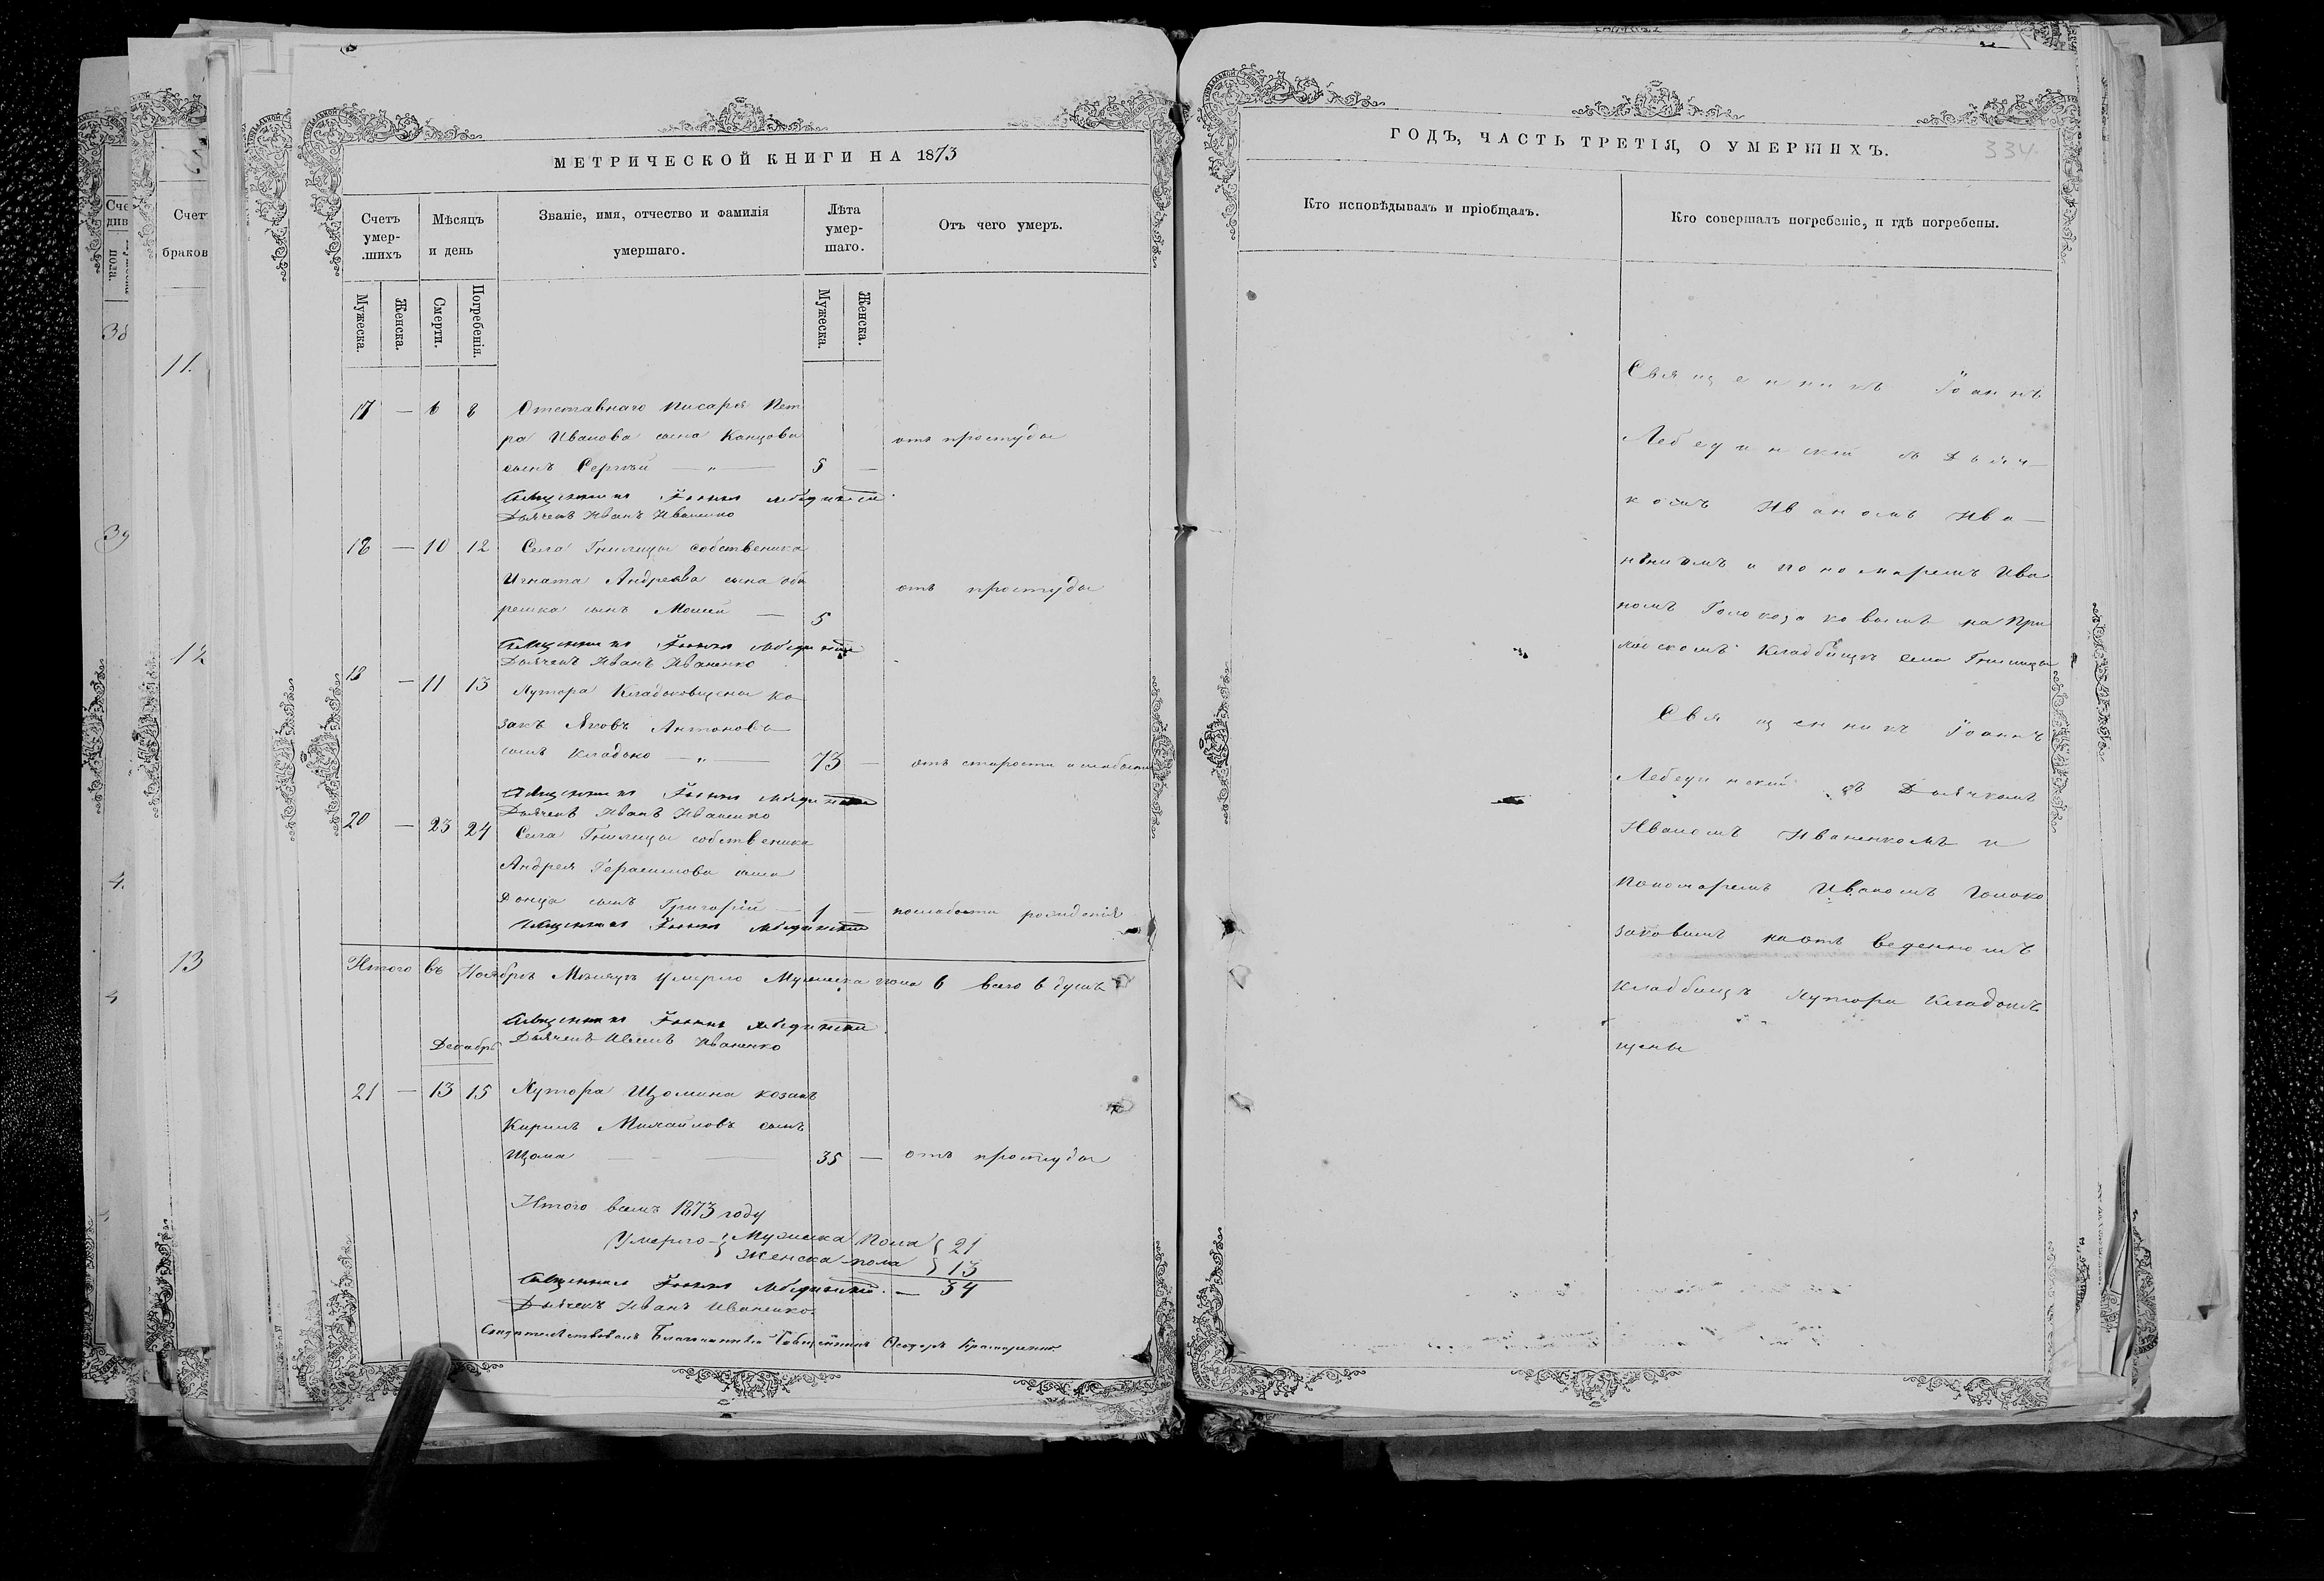 МЕТРИЧЕСКОЙ КНИГИ НА 1873
Счетъ умер-шихъ
Мѣсяцъ и день
Званіе, имя, отчество и фамилія умершаго.
Лѣта умер-шаго.
Отъ чего умеръ.
Мужеска.
Женска.
Смерти.
Погребенія.
Мужеска.
Женска.
17 — 6 8 Отставнаго писаря Пет
ра Иванова сына Канцова
отъ простуды
сынъ Сергѣй — „ — 5 —
Священникъ Іоаннъ Лебединскій
Дьячекъ Иванъ Иваненко
18 — 10 12 Села Гнилицы собственика
Игната Андреева сына
отъ простуды
решка сынъ Моисей — 5
Священникъ Іоаннъ Лебединскій
Дьячекъ Иванъ Иваненко
— 11 13 Хутора Кладьковщены ко
закъ Яковъ Антоновъ
сынъ Кладько — „ — 73 — отъ старости и слабости
Священникъ Іоаннъ Лебединскій
Дьячекъ Иванъ Иваненко
20 — 23 24 Села Гнилицы собственика
Андрея Герасимова сына
Донца сынъ Григорій — 1 — рожденія
Священникъ Іоаннъ Лебединскій
Итого въ Ноябрѣ Мѣсяцѣ умерло Мужеска пола 6 всего 6 душъ
Священникъ Іоаннъ Лебединскій
Дьячекъ Иванъ Иваненко
Декабрь
21 — 13 15 Хутора Щомина козакъ
Кирилъ Михайловъ сынъ
Щома — — 35 — отъ простуды
Итого всемъ 1873 году
Умерло — Мужеска пола 21
Женска пола 13
Священникъ Іоаннъ Лебединскій — 34
Дьячекъ Иванъ Иваненко
Свидетелствовалъ Благочинный Священникъ Ѳеодоръ
ГОДЪ, ЧАСТЬ ТРЕТІЯ, О УМЕРШИХЪ.
334
Кто исповѣдывалъ и пріобщалъ.
Кто совершалъ погребеніе, и гдѣ погребены.
Священникъ Іоаннъ
Лебединскій съ Дьяч
комъ Иваномъ Ива
ненкомъ и пономаремъ Ива
номъ Голокозаковымъ на При
ходскомъ Кладбищѣ села Гнилицы
Священникъ Іоаннъ
Лебединскій съ Дьячкомъ
Иваномъ Иваненкомъ и
пономаремъ Иваномъ Голоко
заковымъ на отведенномъ
кладбищѣ Хутора Кладков
щены
Счет
браков
11.
12
13
38
39